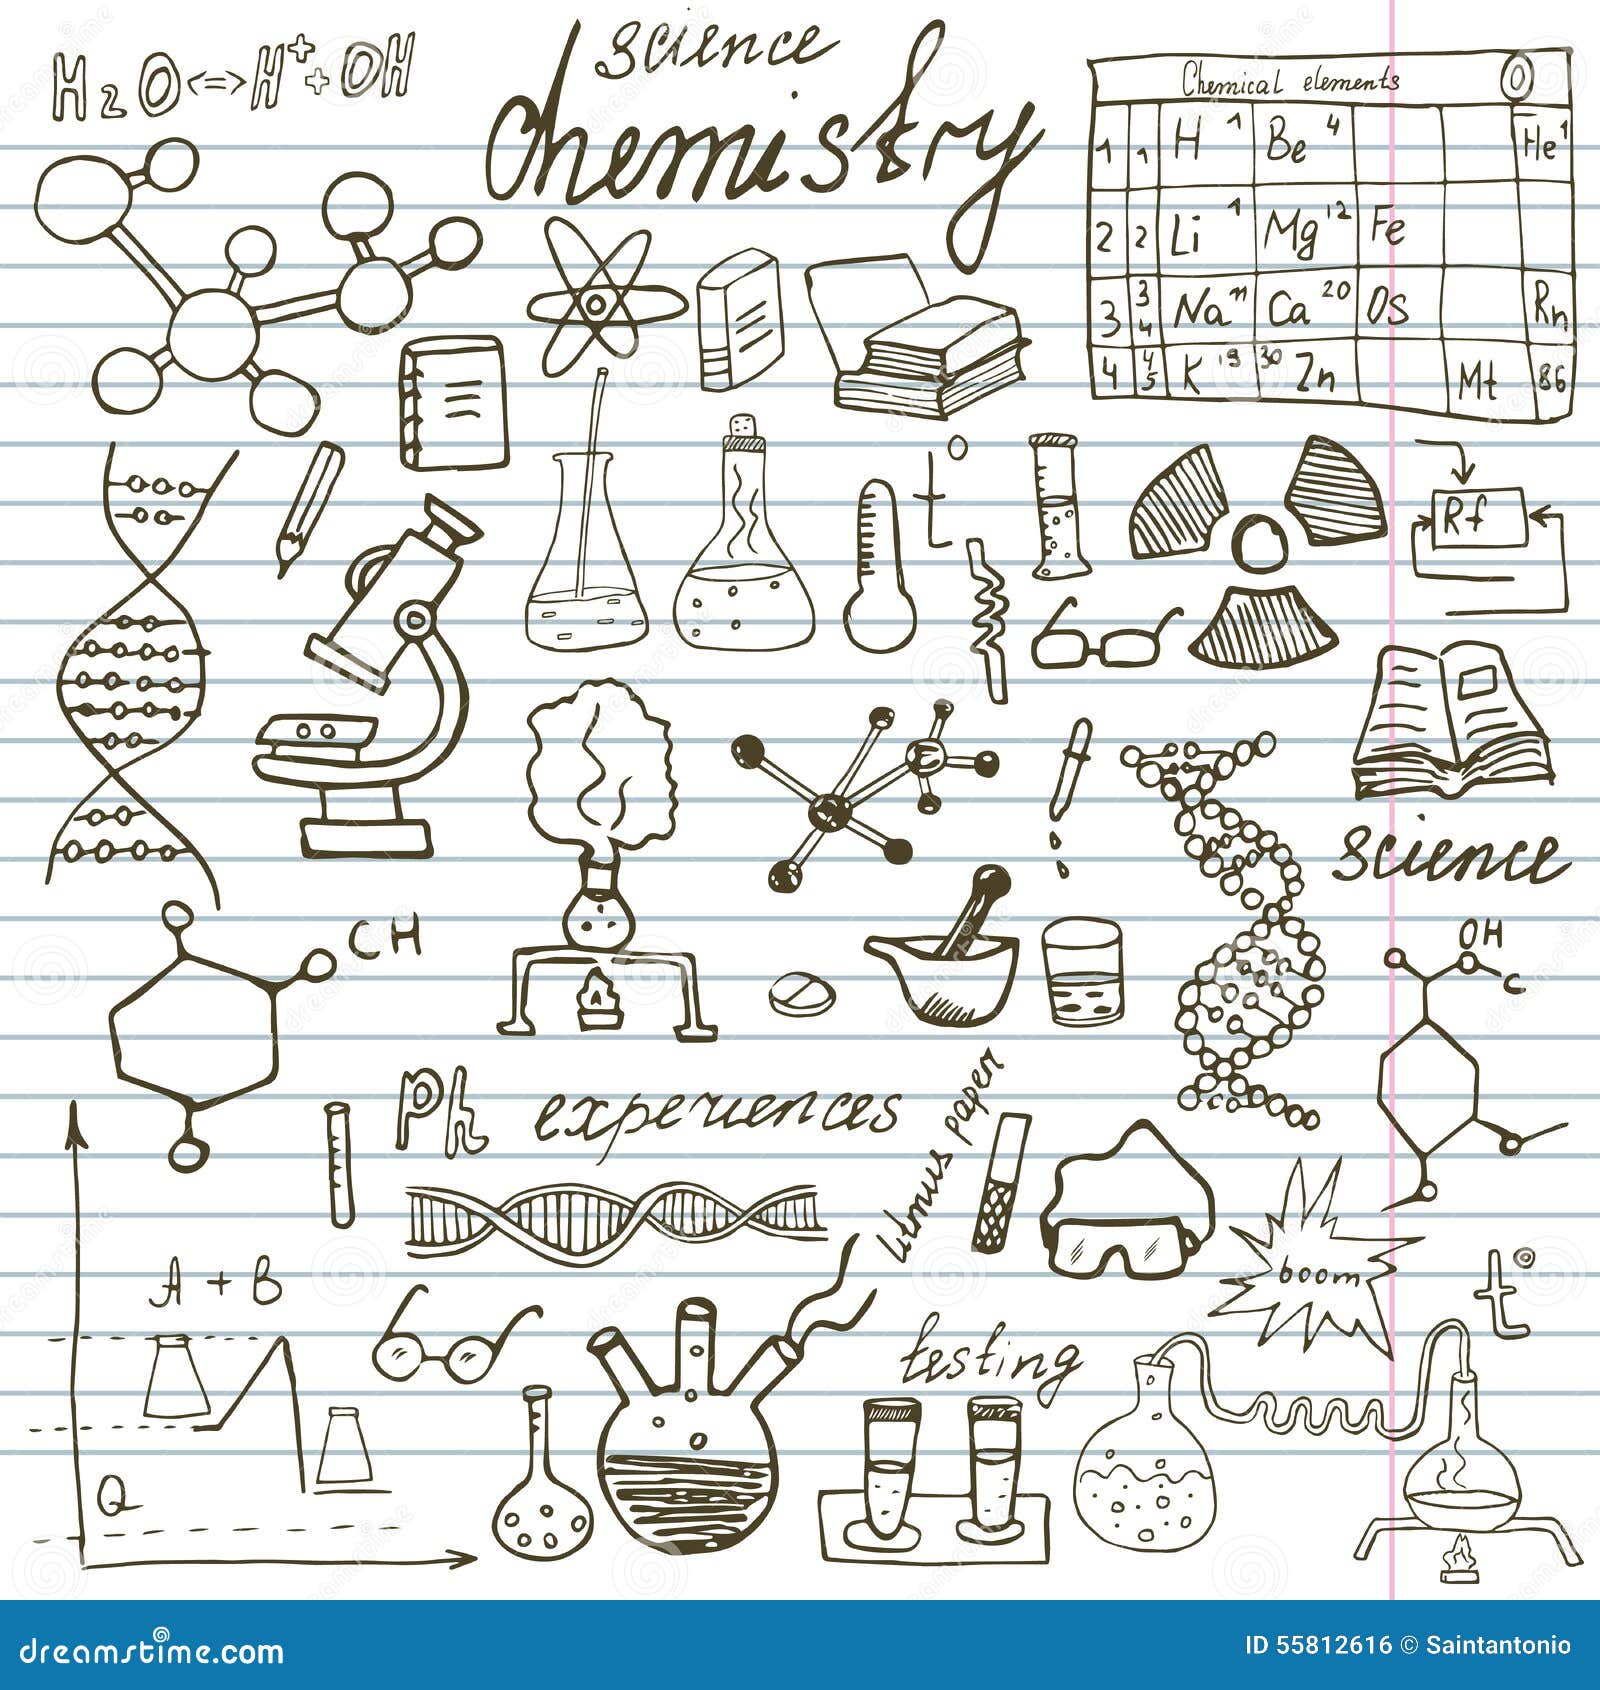 science
chemistry
H2O<=>H⁺+OH
Chemical elements
0
1 1 H 1 Be 4 He 1
2 2 Li 1 Mg 12 Fe
3 3 4 Na 11 Ca 20 Os Rn
4 4 5 K 19 30 Zn Mt 86
t°
Rf
science
CH
OH
C
Ph
experiences
litmus paper
boom
A + B
t°
testing
Q
dreamstime.com
ID 55812616 © Saintantonio